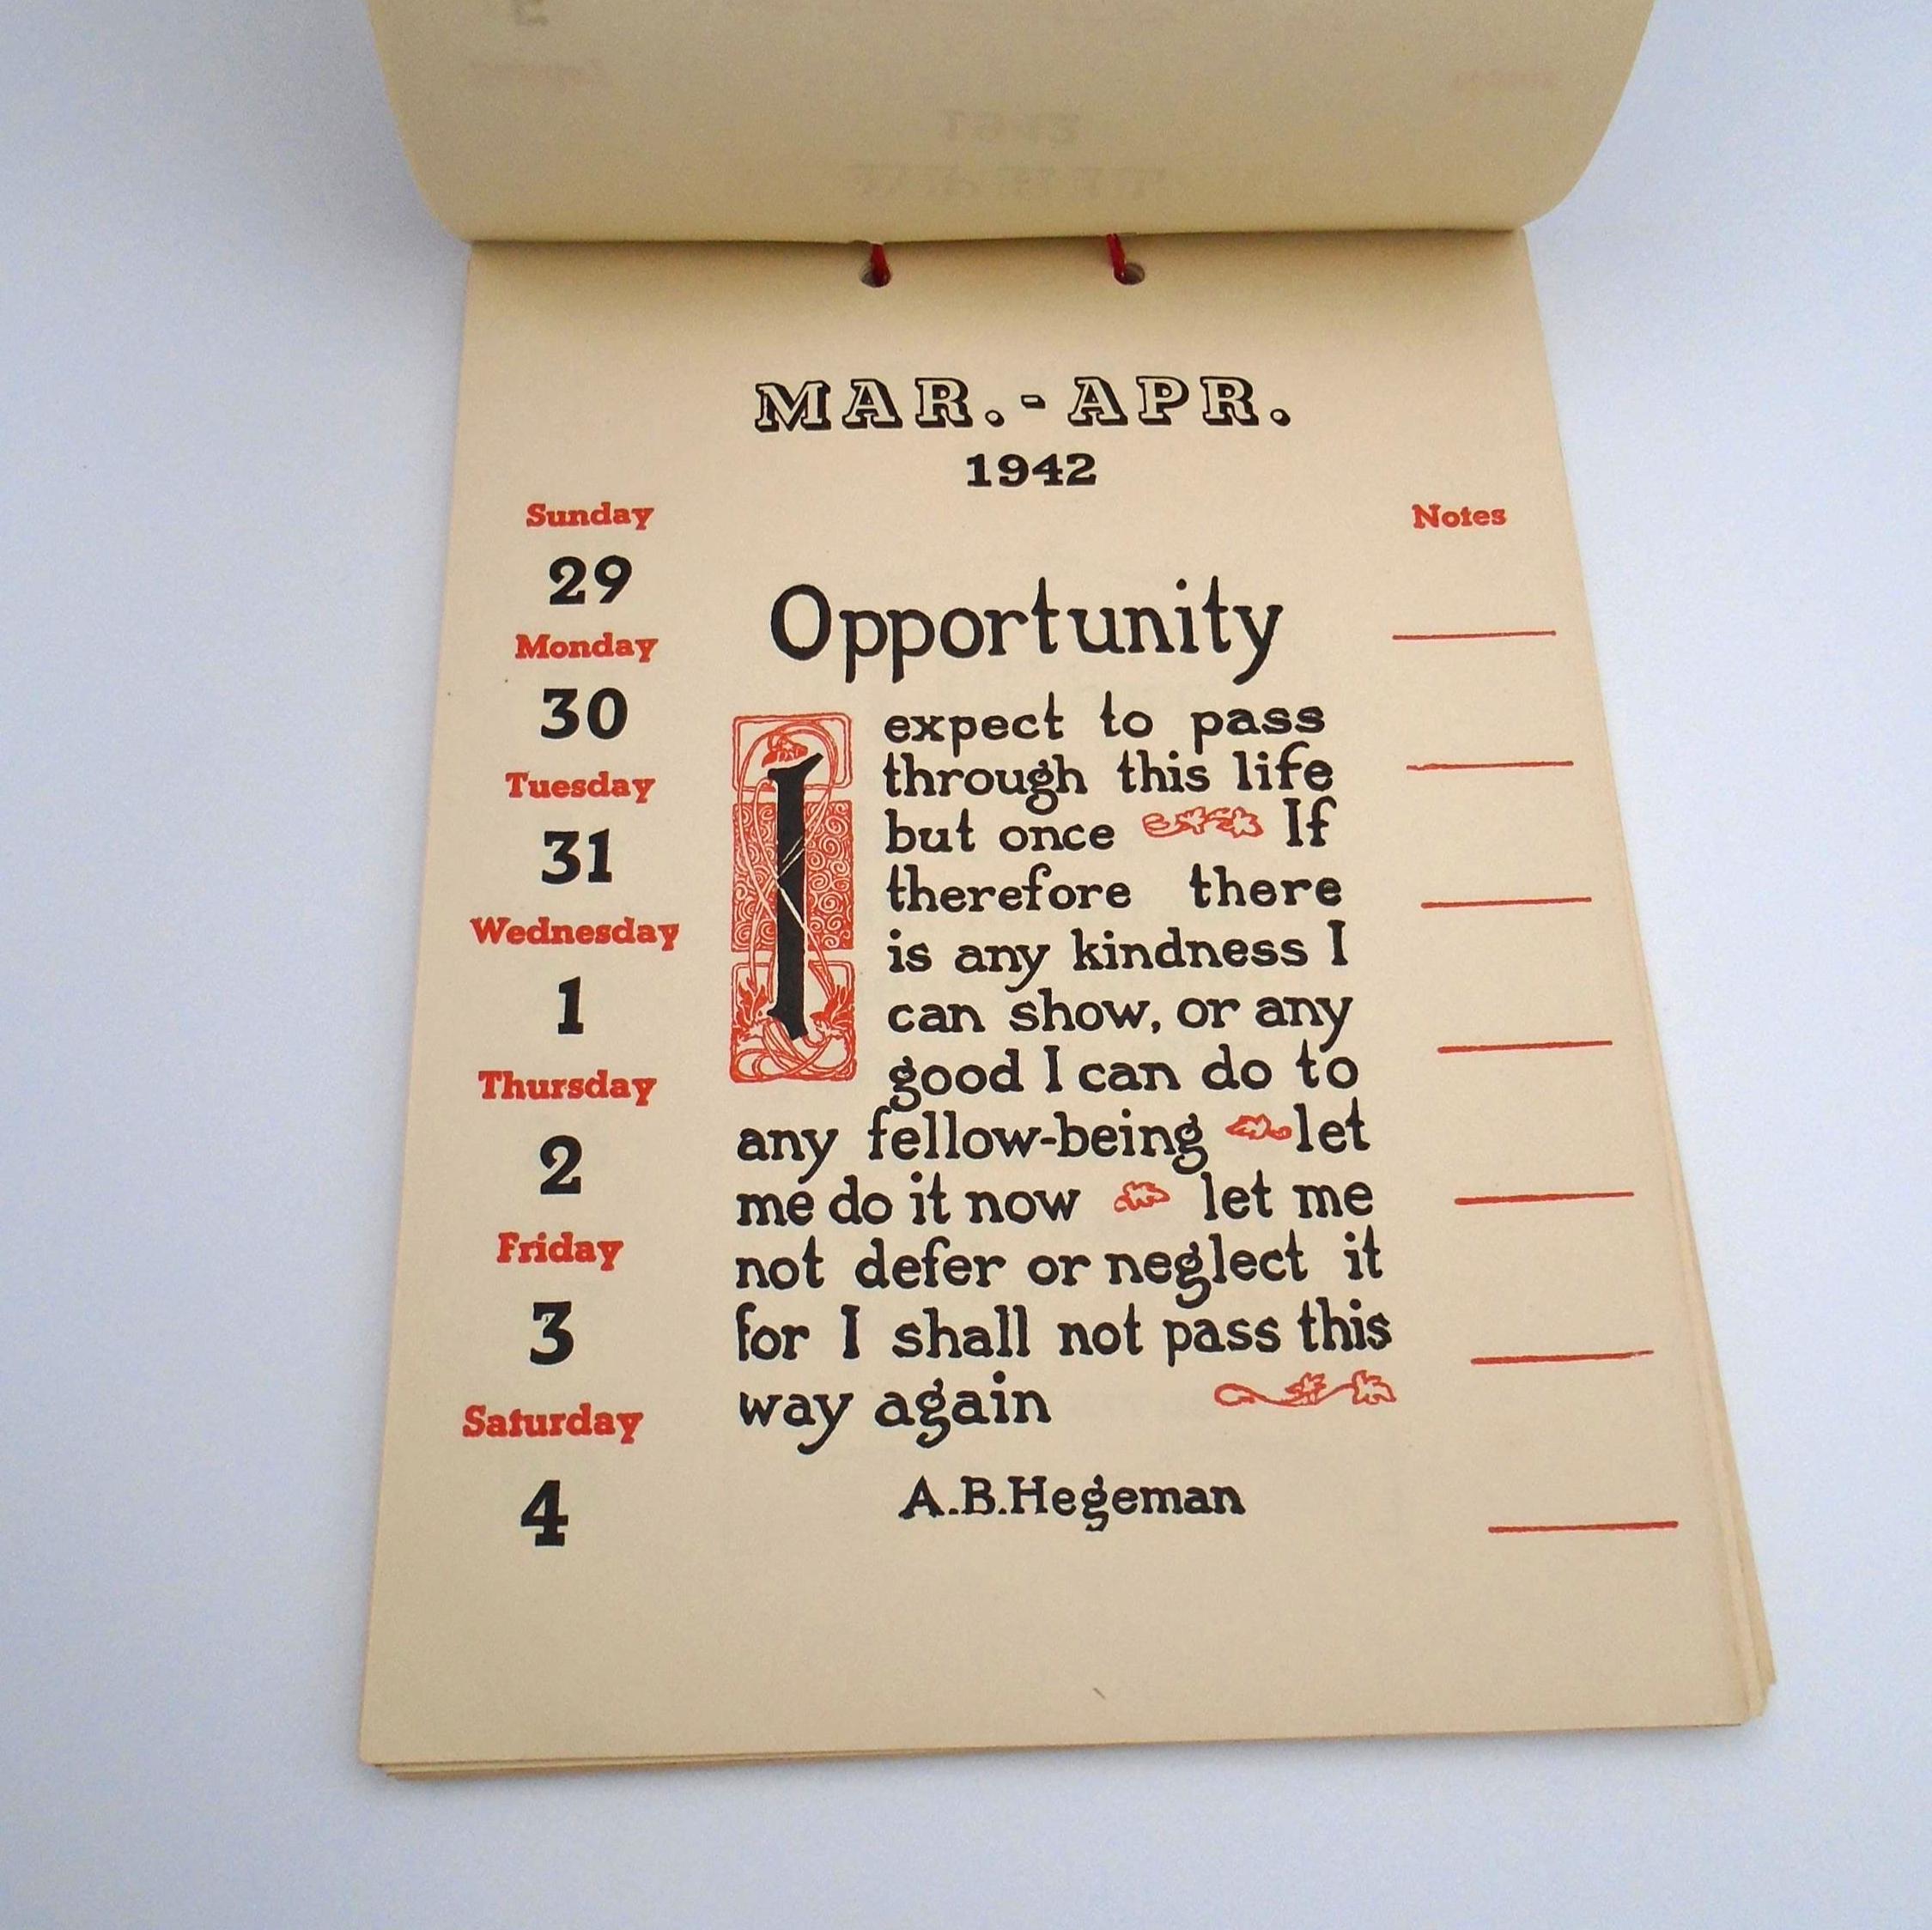 MAR.-APR.
1942
Sunday
29
Monday
30
Tuesday
31
Wednesday
1
Thursday
2
Friday
3
Saturday
4
Opportunity
I expect to pass
through this life
but once If
therefore there
is any kindness I
can show, or any
good I can do to
any fellow-being let
me do it now let me
not defer or neglect it
for I shall not pass this
way again
A.B.Hegeman
Notes